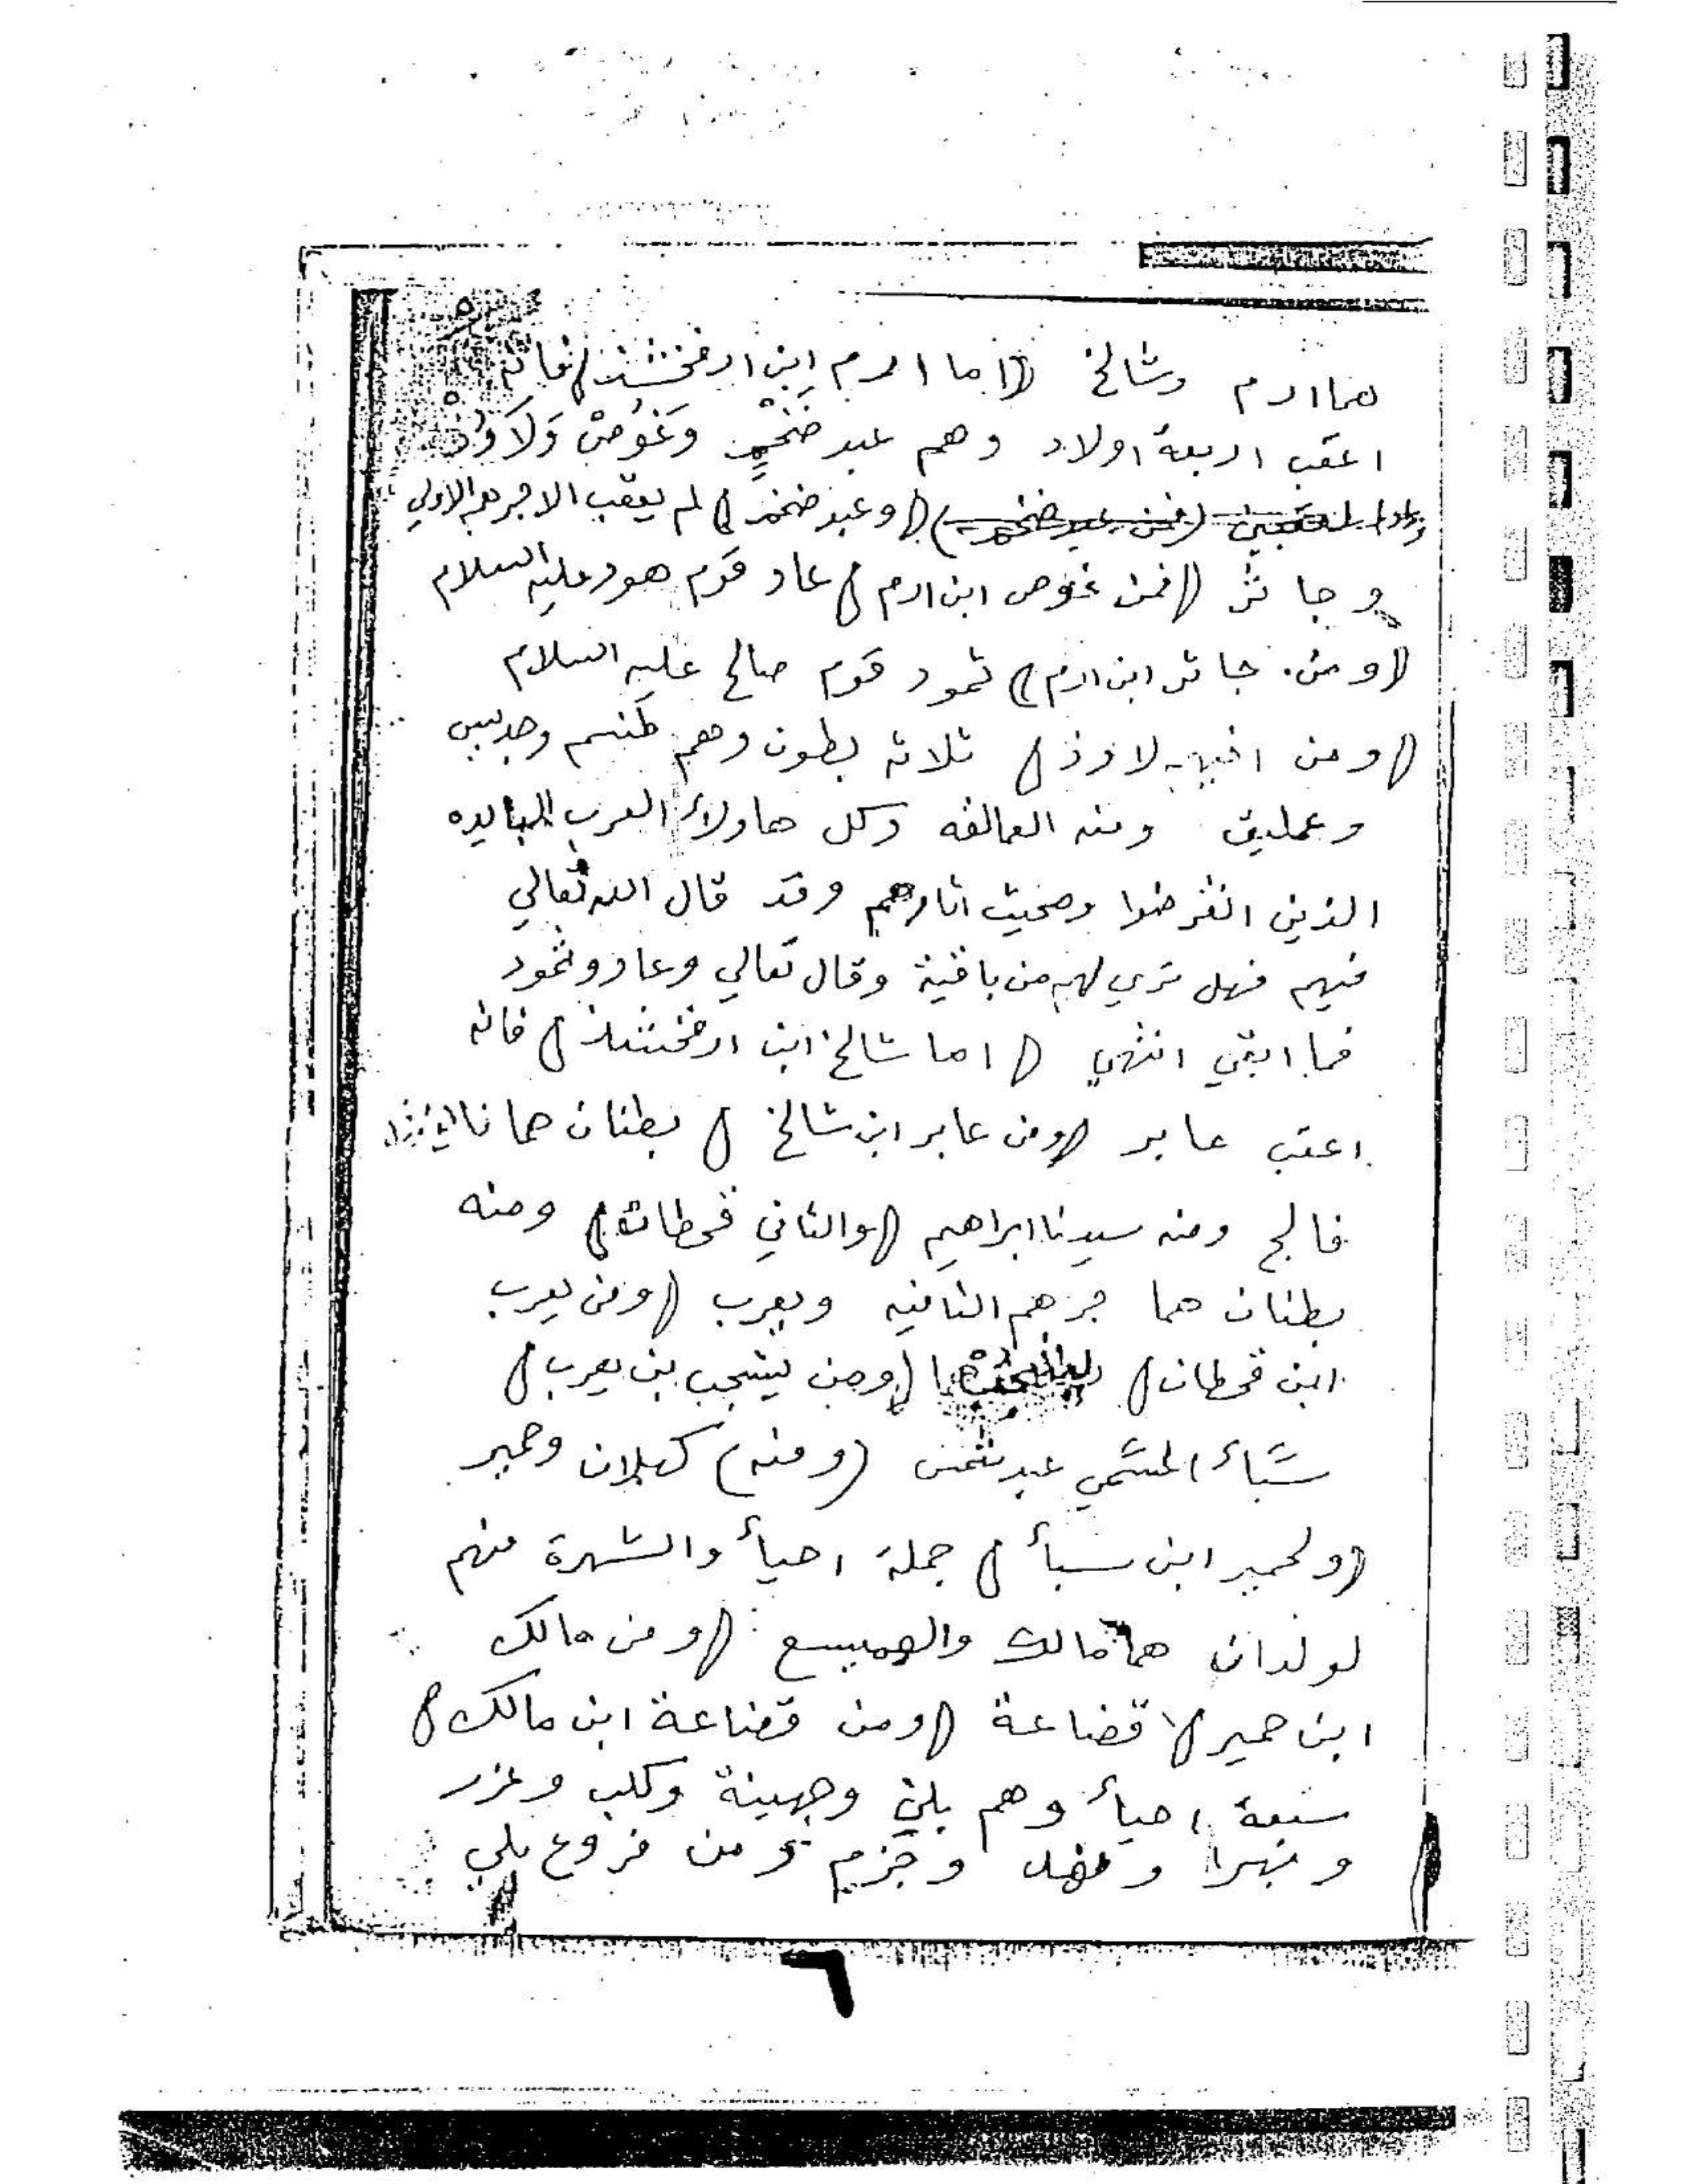 هما ارم وشالخ (اما ارم ابن ارفخشذ) فانه
اعقب اربعة اولاد وهم عبد ضَخْمٍ وَعَوُصْ وَلَاوَذْ
(وعبد ضخم) لم يعقب الا جرهم الاولي
وجاثر (فمن عوص ابن ارم) عاد قوم هود عليه السلام
(ومن جاثر ابن ارم) ثمود قوم صالح عليه السلام
(ومن اخيه لاوذ) ثلاثه بطون وهم طسم وجديس
وعمليق ومنه العمالقه وكل هاولاء العرب البايده
الذين انقرضوا ومحيت اثارهم وقد قال الله تعالي
فيهم فهل تري لهم من باقية وقال تعالي وعاد وثمود
فما ابقي انتهي (اما شالخ ابن ارفخشذ) فانه
اعقب عابر (ومن عابر ابن شالخ) بطنان هما
فالج ومنه سيدنا ابراهيم (والثاني قحطان) ومنه
بطنان هما جرهم الثانيه ويعرب (ومن يعرب
ابن قحطان) (ومن يشجب بن يعرب)
سَبَاءْ المسَمي عبد شمس (ومنه) كهلان وحمير
(ولحمير ابن سبأ) جملة احيأ والشهرة منهم
لولدان هما مالك والهميسع (ومن مالك
ابن حمير) قضاعة (ومن قضاعة ابن مالك)
سبعة احيأ وهم بلي وجهينة وكلب وعزر
وبهرا ونهد وجرم ومن فروع بلي
٦